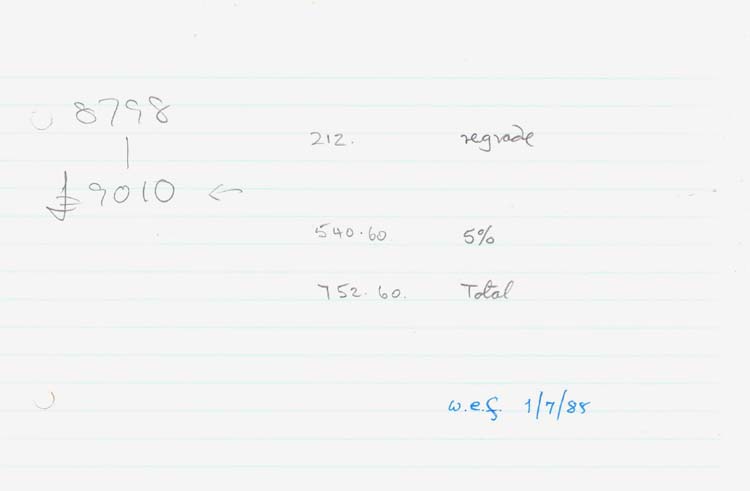 8798
212. regrade
£9010 ←
540.60 5%
752.60. Total
w.e.f. 1/7/88